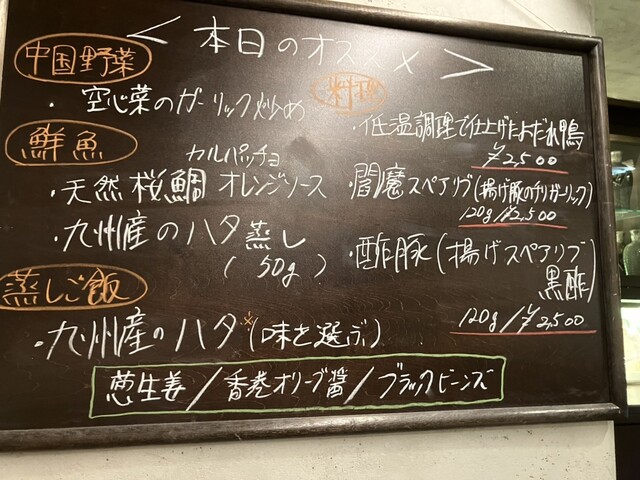 ＜本日のオススメ＞
中国野菜
・空心菜のガーリック炒め
鮮魚
カルパッチョ
・天然桜鯛 オレンジソース
・九州産のハタ蒸し
(50g)
蒸しご飯
・九州産のハタ※(味を選ぶ)
葱生姜/香港オリーブ醤/ブラックビーンズ
料理
・低温調理で仕上げたよだれ鴨
¥2,500
・閻魔スペアリブ(揚げ豚のチリガーリック)
120g/¥2,500
・酢豚(揚げスペアリブ
黒酢)
120g/¥2,500